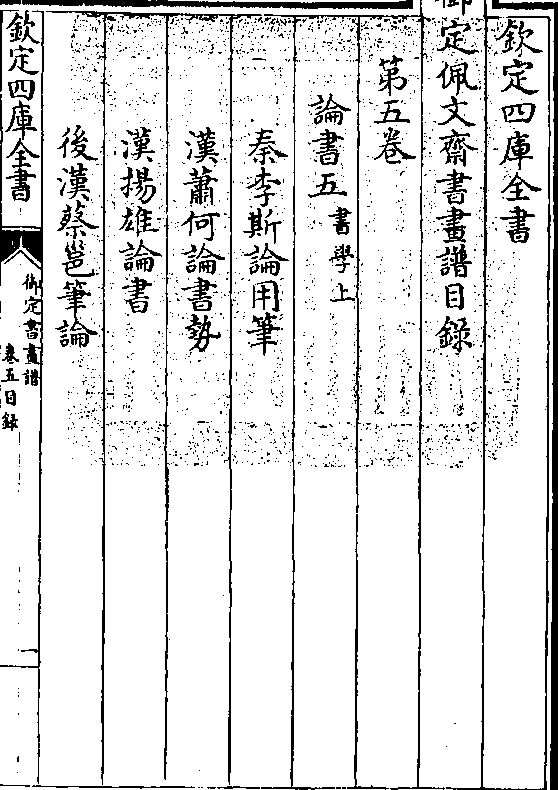 欽定四庫全書
御定佩文齋書畫譜目錄
第五卷
論書五書學上
秦李斯論用筆
漢蕭何論書勢
漢揚雄論書
後漢蔡邕筆論
欽定四庫全書
御定書畫譜
卷五目錄
一